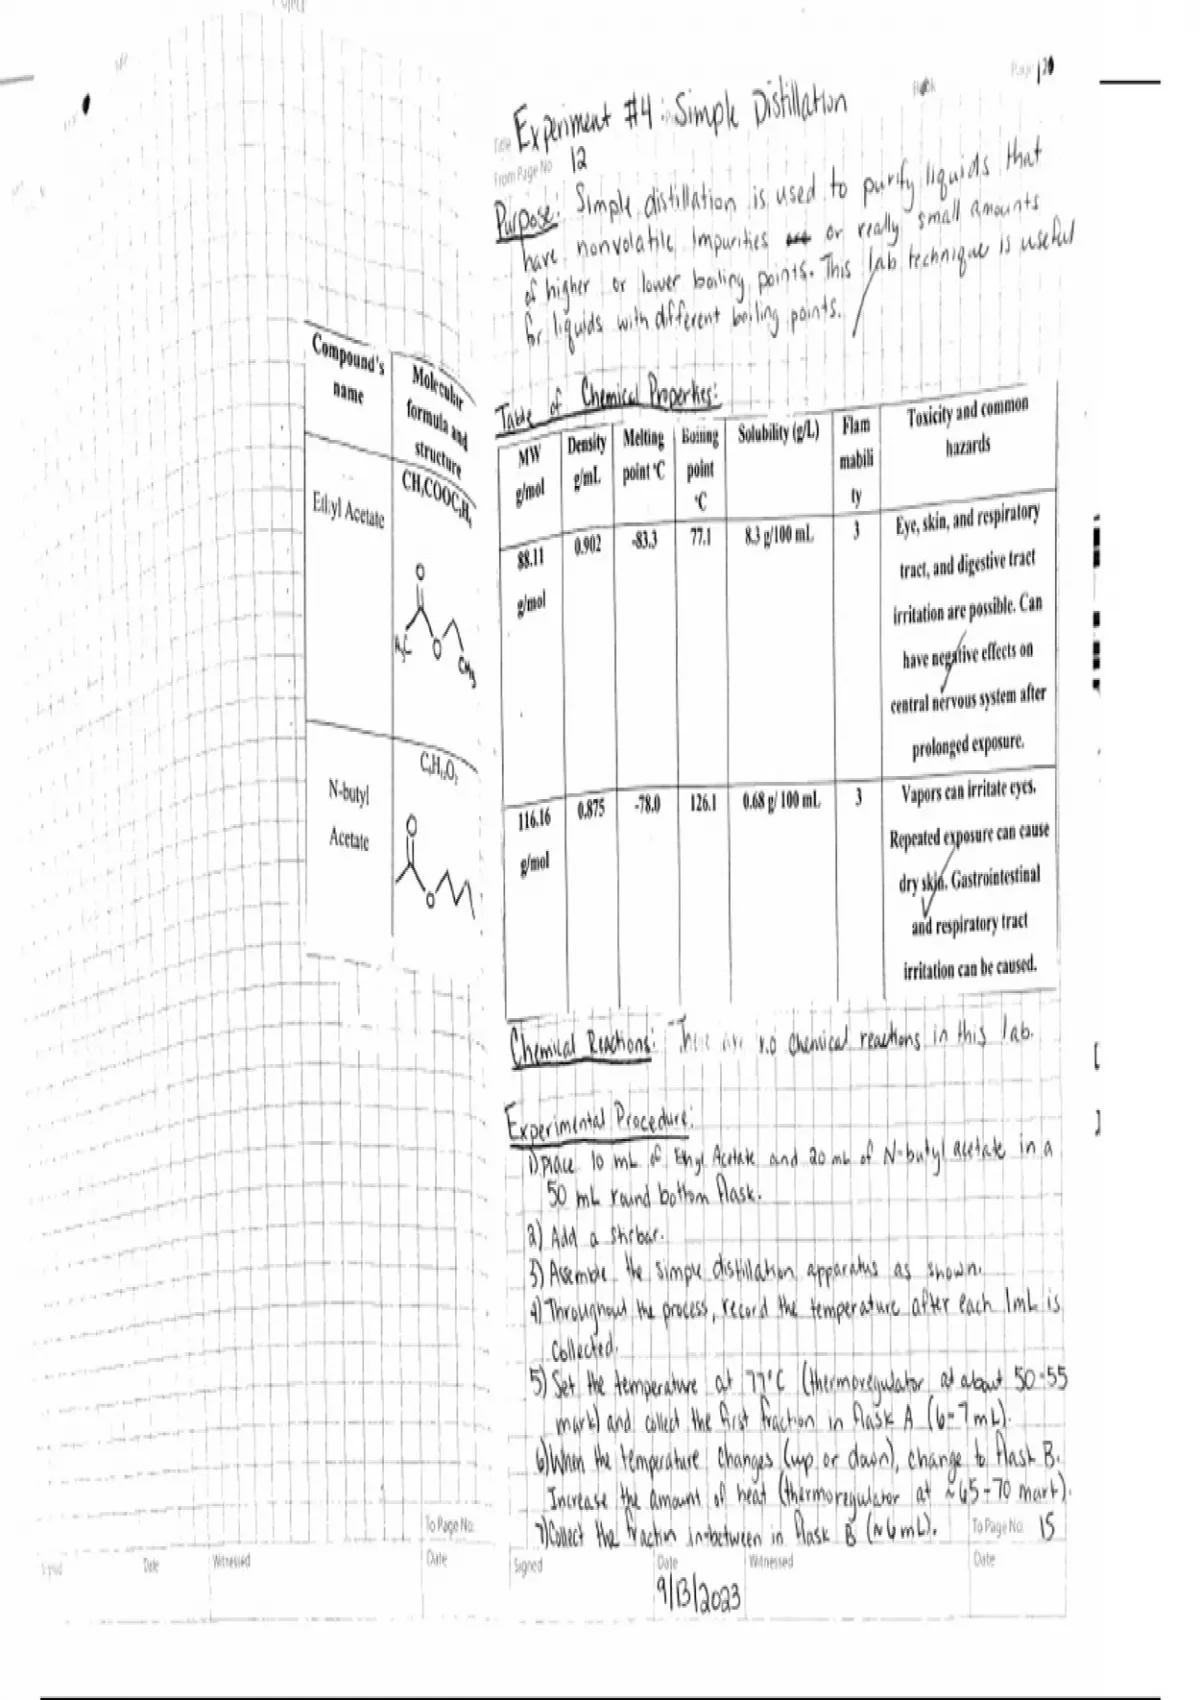 Page
Experiment #4: Simple Distillation
Title
From Page No. 12
Purpose: Simple distillation is used to purify liquids that
have nonvolatile impurities or really small amounts
of higher or lower boiling points. This lab technique is useful
for liquids with different boiling points.
Table of Chemical Properties:
Compound's name
Molecular formula and structure
MW g/mol
Density g/mL
Melting point °C
Boiling point °C
Solubility (g/L)
Flam mabili ty
Toxicity and common hazards
Ethyl Acetate
CH₃COOC₂H₅
O
H₃C
O
CH₃
88.11 g/mol
0.902
-83.3
77.1
8.3 g/100 mL
3
Eye, skin, and respiratory
tract, and digestive tract
irritation are possible. Can
have negative effects on
central nervous system after
prolonged exposure.
N-butyl
Acetate
C₆H₁₂O₂
O
O
116.16
g/mol
0.875
-78.0
126.1
0.68 g/ 100 mL
3
Vapors can irritate eyes.
Repeated exposure can cause
dry skin. Gastrointestinal
and respiratory tract
irritation can be caused.
Chemical Reactions: There are no chemical reactions in this lab.
Experimental Procedure:
1) Place 10 mL of Ethyl Acetate and 20 mL of N-butyl acetate in a
50 mL round bottom flask.
2) Add a stirbar.
3) Assemble the simple distillation apparatus as shown.
4) Throughout the process, record the temperature after each 1mL is
collected.
5) Set the temperature at 77°C (thermoregulator at about 50-55
mark) and collect the first fraction in flask A (6-7 mL).
6) When the temperature changes (up or down), change to flask B.
Increase the amount of heat (thermoregulator at ~65-70 mark).
7) Collect the fraction in-between in flask B (~6mL).
To Page No.
To Page No. 15
Signed
Date
Witnessed
Date
Signed
Date
Witnessed
Date
9/13/2023